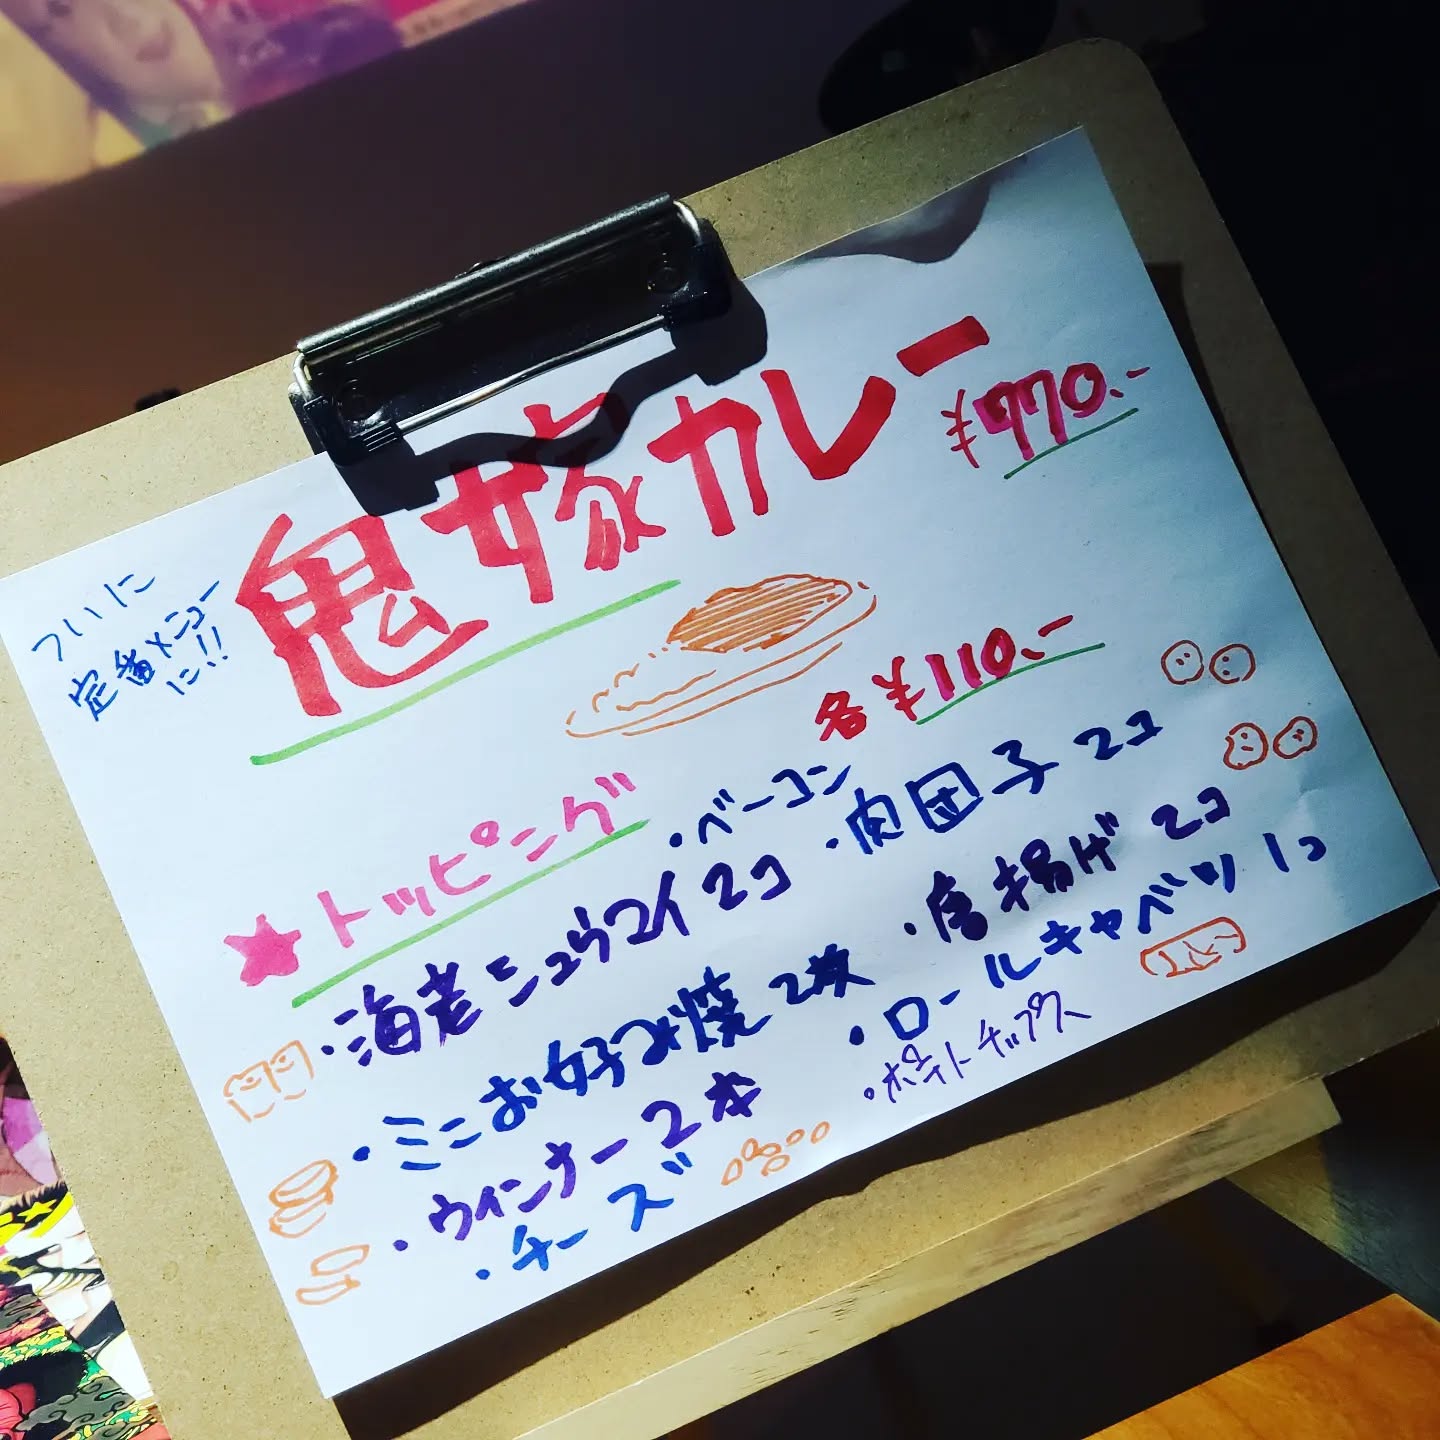 ついに
定番メニュー
に!!
鬼嫁カレー
¥770.-
各¥110.-
★トッピング
・ベーコン
・海老シュウマイ2コ
・肉団子2コ
・ミニお好み焼2枚
・唐揚げ2コ
・ウインナー2本
・ロールキャベツ1コ
・チーズ
・ポテトチップス